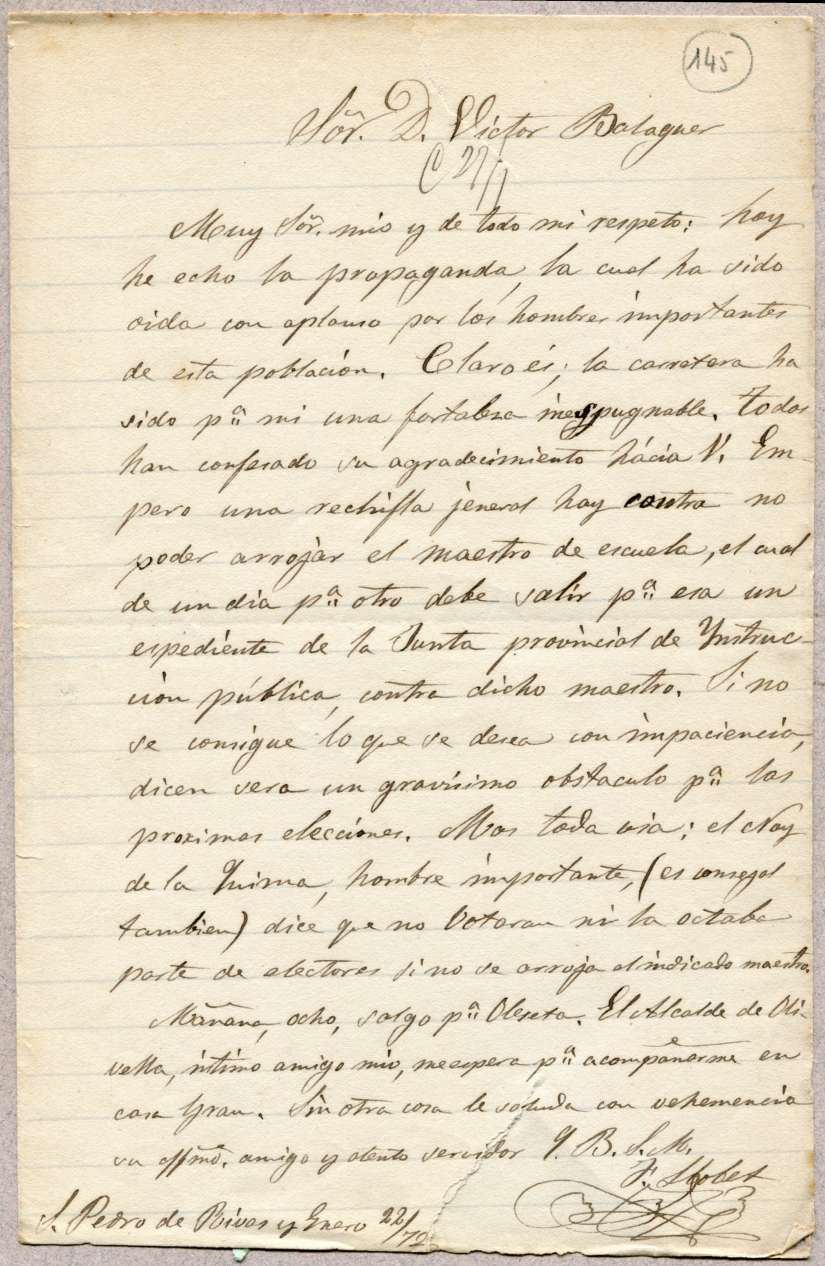 145
Sõr. D. Victor Balaguer
C 27/1
Muy Sõr. mio y de todo mi respeto: hoy
he echo la propaganda, la cual ha sido
oida con aplauso por los hombres importantes
de esta población. Claro és; la carretera ha
sido pª mi una fortaleza inespugnable. Todos
han confesado su agradecimiento hácia V. Em-
pero una rechifla jeneral hay contra no
poder arrojar el maestro de escuela, el cual
de un dia pª otro debe salir pª esa un
espediente de la Junta provincial de Ynstruc-
ción pública, contra dicho maestro. Si no
se consigue lo que se desea con impaciencia,
dicen sera un gravísimo obstaculo pª las
proximas elecciones. Mas toda via: el Noy
de la Quima, hombre importante, (es consegal
tambien) dice que no Votaran ni la octaba
parte de electores si no se arroja el indicado maestro.
Mañana, ocho, salgo pª Oleseta. El Alcalde de Oli-
vella, íntimo amigo mio, me espera pª acompañarme en
casa Grau. Sin otra cosa le saluda con vehemencia
su affmo. amigo y atento servidor Q. B. S. M.
F.
S. Pedro de Rivas y Enero 22/72